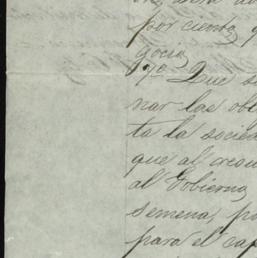 por ciento, q
gocio,
17º Que s
nar las obl
ta la socied
que al resu
al Gobierno,
semena, po
para el cap